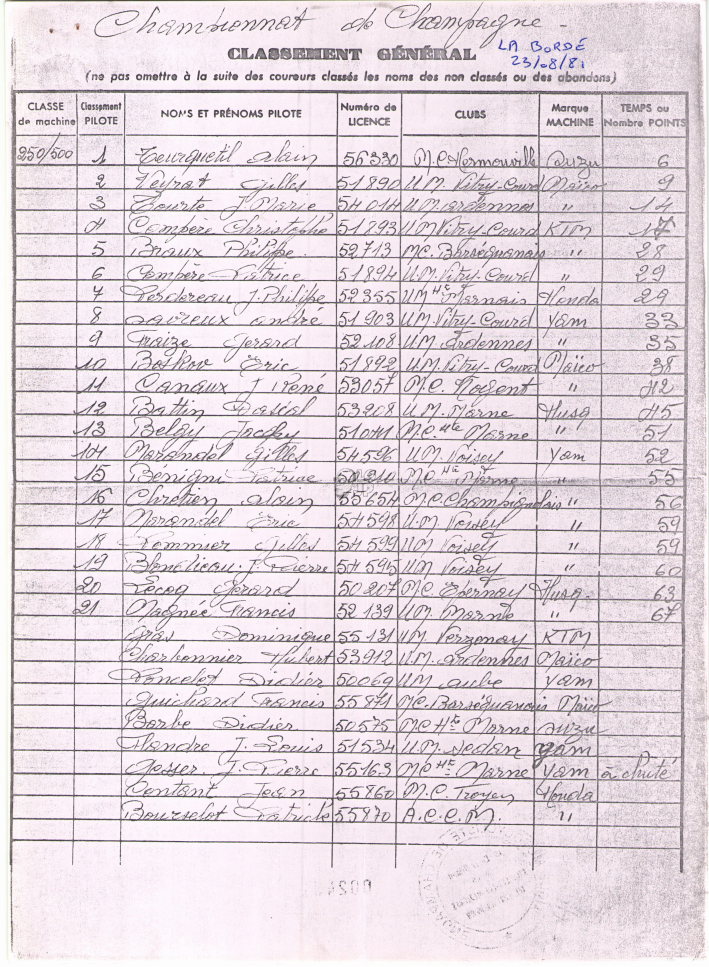 Championnat de Champagne -
CLASSEMENT GÉNÉRAL
LA BORDE
23/08/81
(ne pas omettre à la suite des coureurs classés les noms des non classés ou des abandons)
CLASSE de machine Classement PILOTE NOMS ET PRÉNOMS PILOTE Numéro de LICENCE CLUBS Marque MACHINE TEMPS ou Nombre POINTS
250/500 1 Teurquetil Alain 56330 M.C. Hermonville Suzu 6
2 Veyrat Gilles 51890 U.M. Vitry-Courd Maïco 9
3 Tourte J. Marie 54014 U.M. Ardennes " 14
4 Compère Christophe 51893 U.M Vitry-Courd KTM 17
5 Briaux Philippe 52713 M.C. Barséquanais " 28
6 Compère Patrice 51894 U.M. Vitry-Courd " 29
7 J. Philippe 52355 U.M Hte Marnais Honda 29
8 André 51903 U.M. Vitry-Courd Yam 33
9 Fraize Gerard 52108 U.M. Ardennes " 35
10 Botkov Eric 51892 U.M. Vitry-Courd Maïco 38
11 Canaux J. René 53057 M.C. Nogent " 42
12 Battin Pascal 53908 U.M. Marne Husq 45
13 Belgy Jacky 51041 M.C. Hte Marne " 51
14 Marandel Gilles 54596 U.M. Voisey Yam 52
15 Bénigni Patrice 50210 M.C Hte Marne " 55
16 Chretien Alain 55654 M.C. Champignolais " 56
17 Marandel Eric 54598 U.M. Voisey " 59
18 Pommier Gilles 54599 U.M Voisey " 59
19 J. Pierre 54595 U.M Voisey " 60
20 Lecoq Gérard 50207 M.C Epernay Husq. 63
21 Magnée Francis 52139 U.M. Marne " 67
Gras Dominique 55131 U.M Verzenay KTM
Charbonnier Hubert 53912 U.M. Ardennes Maïco
Poncelet Didier 50069 U.M Aube Yam
Guichard Francis 55871 M.C. Barséquanais Maïco
Barbe Didier 50575 M.C Hte Marne Suzu
Handre J. Louis 51534 U.M. Sedan Yam
Gesser J. Pierre 55163 M.C Hte Marne Yam à chuté
Contant Jean 55860 M.C. Troyen Honda
Bourselot Patrick 55870 A.C.C.M. "